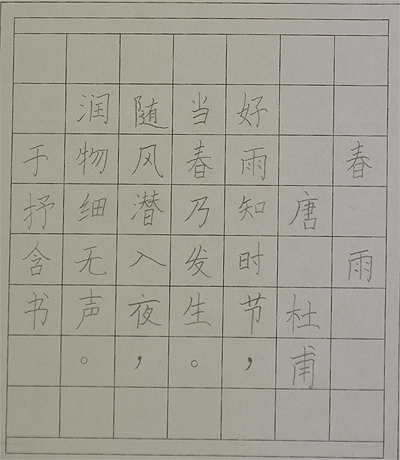 春雨
唐 杜甫
好雨知时节，
当春乃发生。
随风潜入夜，
润物细无声。
于抒含书